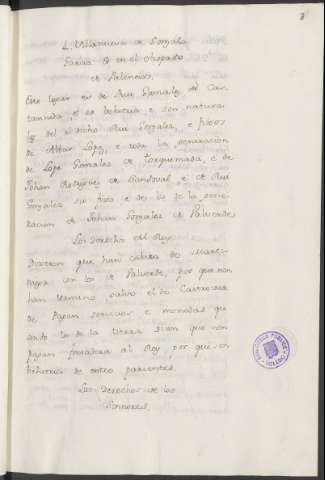 8
L. Villanueva de Gonzalo
Garcia q es en el obispado
de Palencia.
Este logar es de Rui Gonzalez de Cas-
tanneda, e so behetria e son natura
les del el dicho Rui Gonzalez, e fijos
de Alfar Lopez, e toda la generacion
de Lope Gonzalez de Torquemada, e de
Johan Rodriguez de Sandoval e de Rui
Gonzalez su fijo e de los de la gene-
racion de Johan Gonzalez de Palverde.
Los derechos del Rey.
Dixeron que han cabeza de Marti-
niega con los de Palverde, por que non
han termino salvo el de Castro e
de Pagan servicios e monedas que
ando los de la tierra sion que non
pagan fonsadera al Rey por que es
behetria de entre parientes.
Los derechos de los
sennores.
BIBLIOTECA PUBLICA
TOLEDO